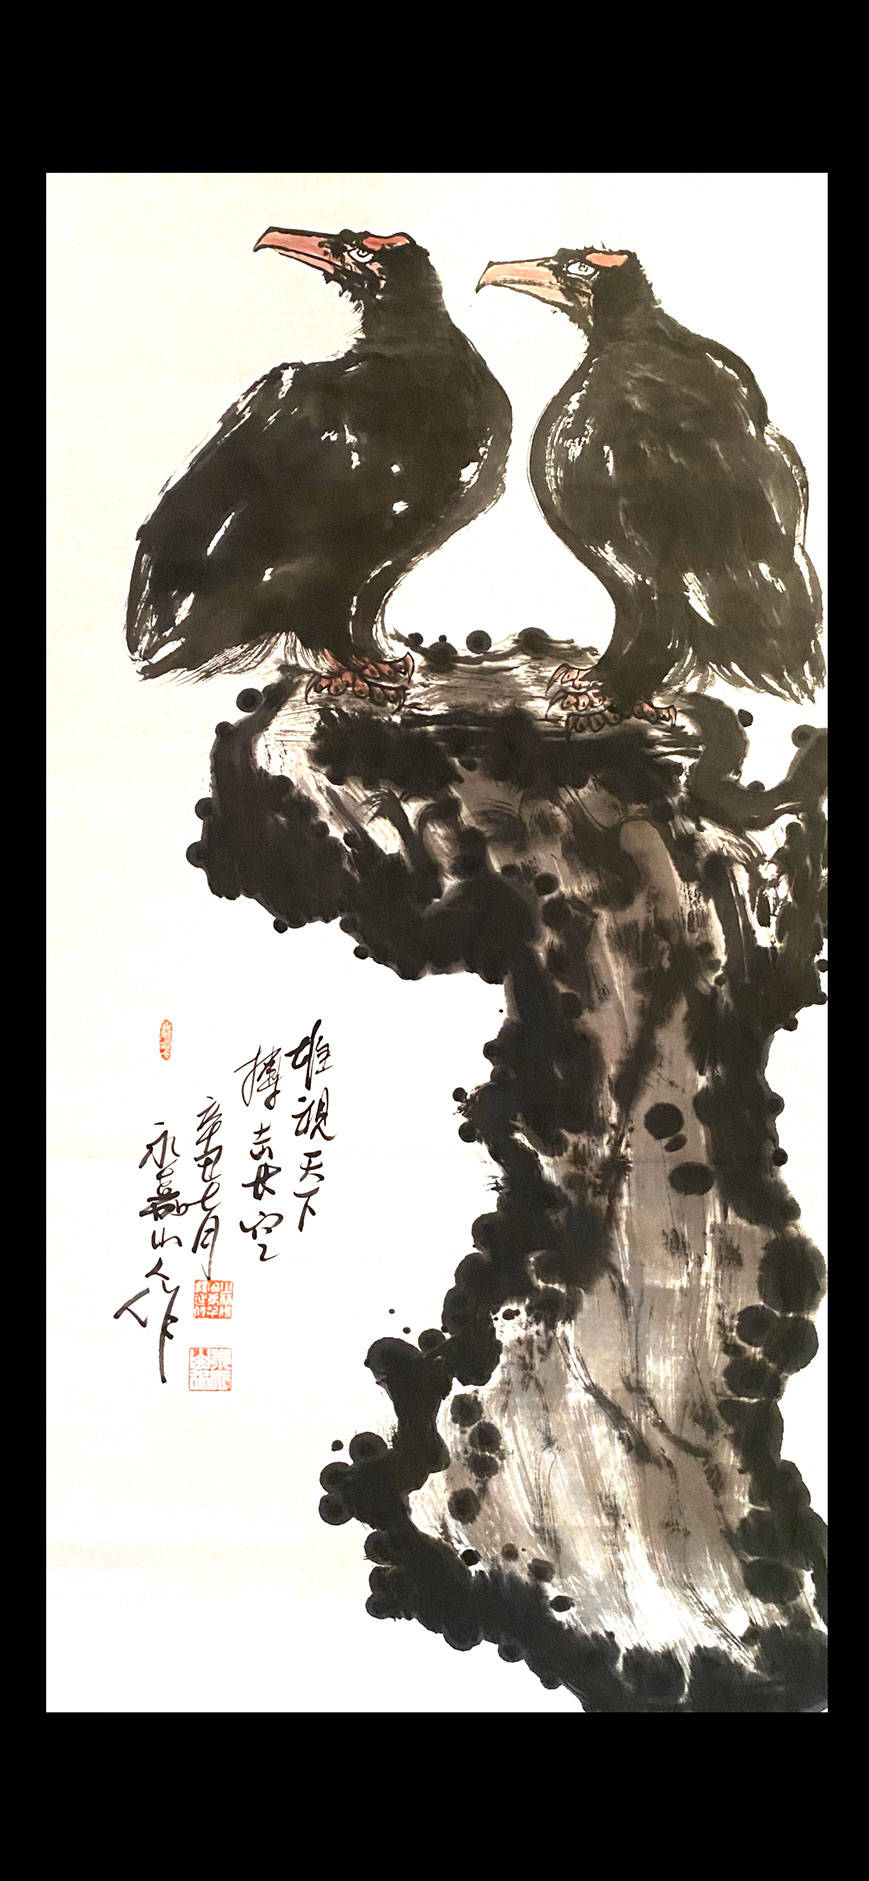 雄视天下
搏击长空
辛丑七月
永嘉山人作